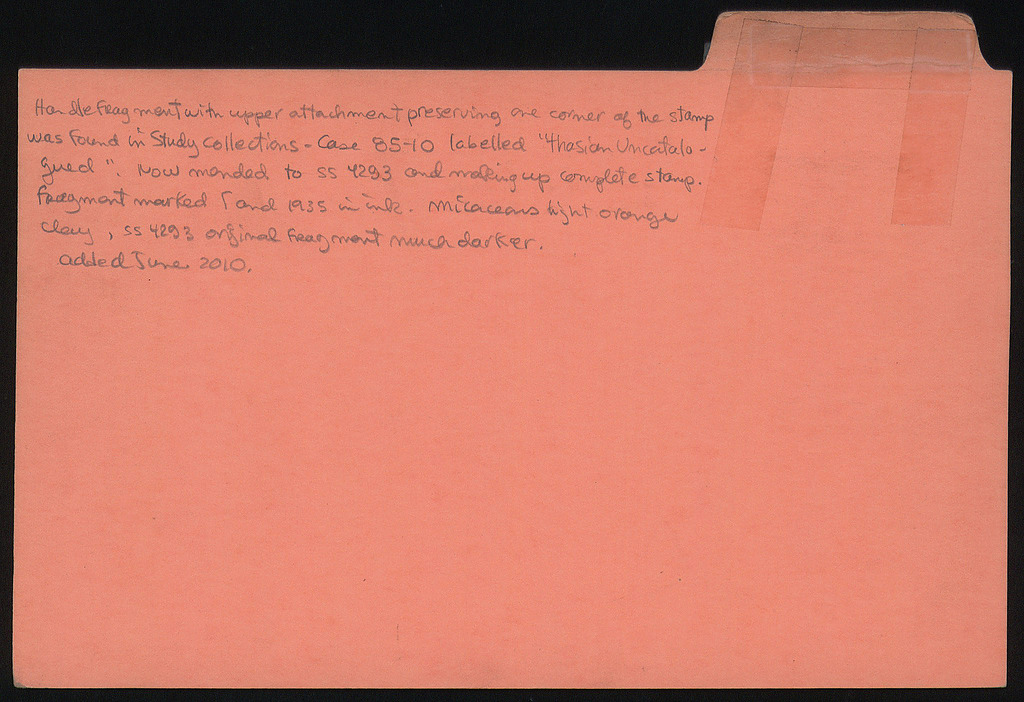 Handle fragment with upper attachment preserving one corner of the stamp
was found in Study collections - Case 85-10 labelled "Thasian Uncatalo-
gued". Now mended to SS 4293 and making up complete stamp.
Fragment marked Γ and 1935 in ink. Micaceous light orange
clay, SS 4293 orginal fragment much darker.
added June 2010.